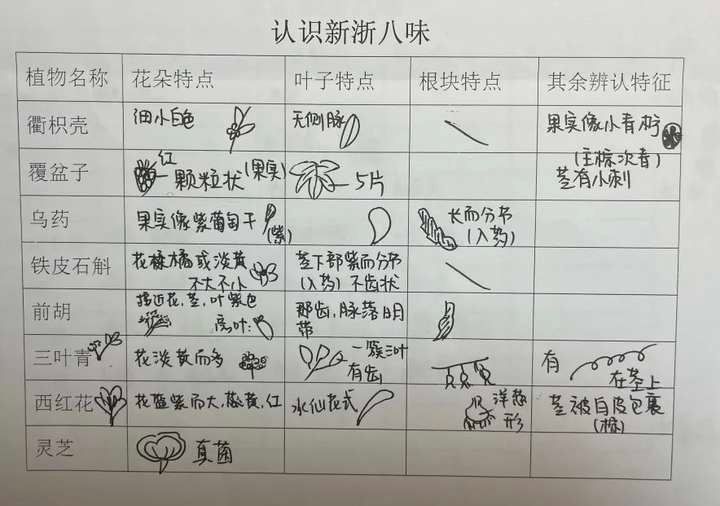 认识新浙八味
植物名称 花朵特点 叶子特点 根块特点 其余辨认特征
衢枳壳 细小白色 无侧脉 果实像小青柠
覆盆子 红 颗粒状(果实) 5片 (主棕次青)
茎有小刺
乌药 果实像紫葡萄干
(紫) 长而分节
(入药)
铁皮石斛 花橡橘或淡黄
不大不小 茎下部紫而分节
(入药) 不齿状
前胡 接近花,茎,叶紫色
亮叶: 脉落明
带
三叶青 花淡黄而多 一簇三叶
有齿 有
在茎上
西红花 花蓝紫而大,蕊黄,红 水仙花式 洋葱
形 茎被白皮包裹
(棕)
灵芝 真菌